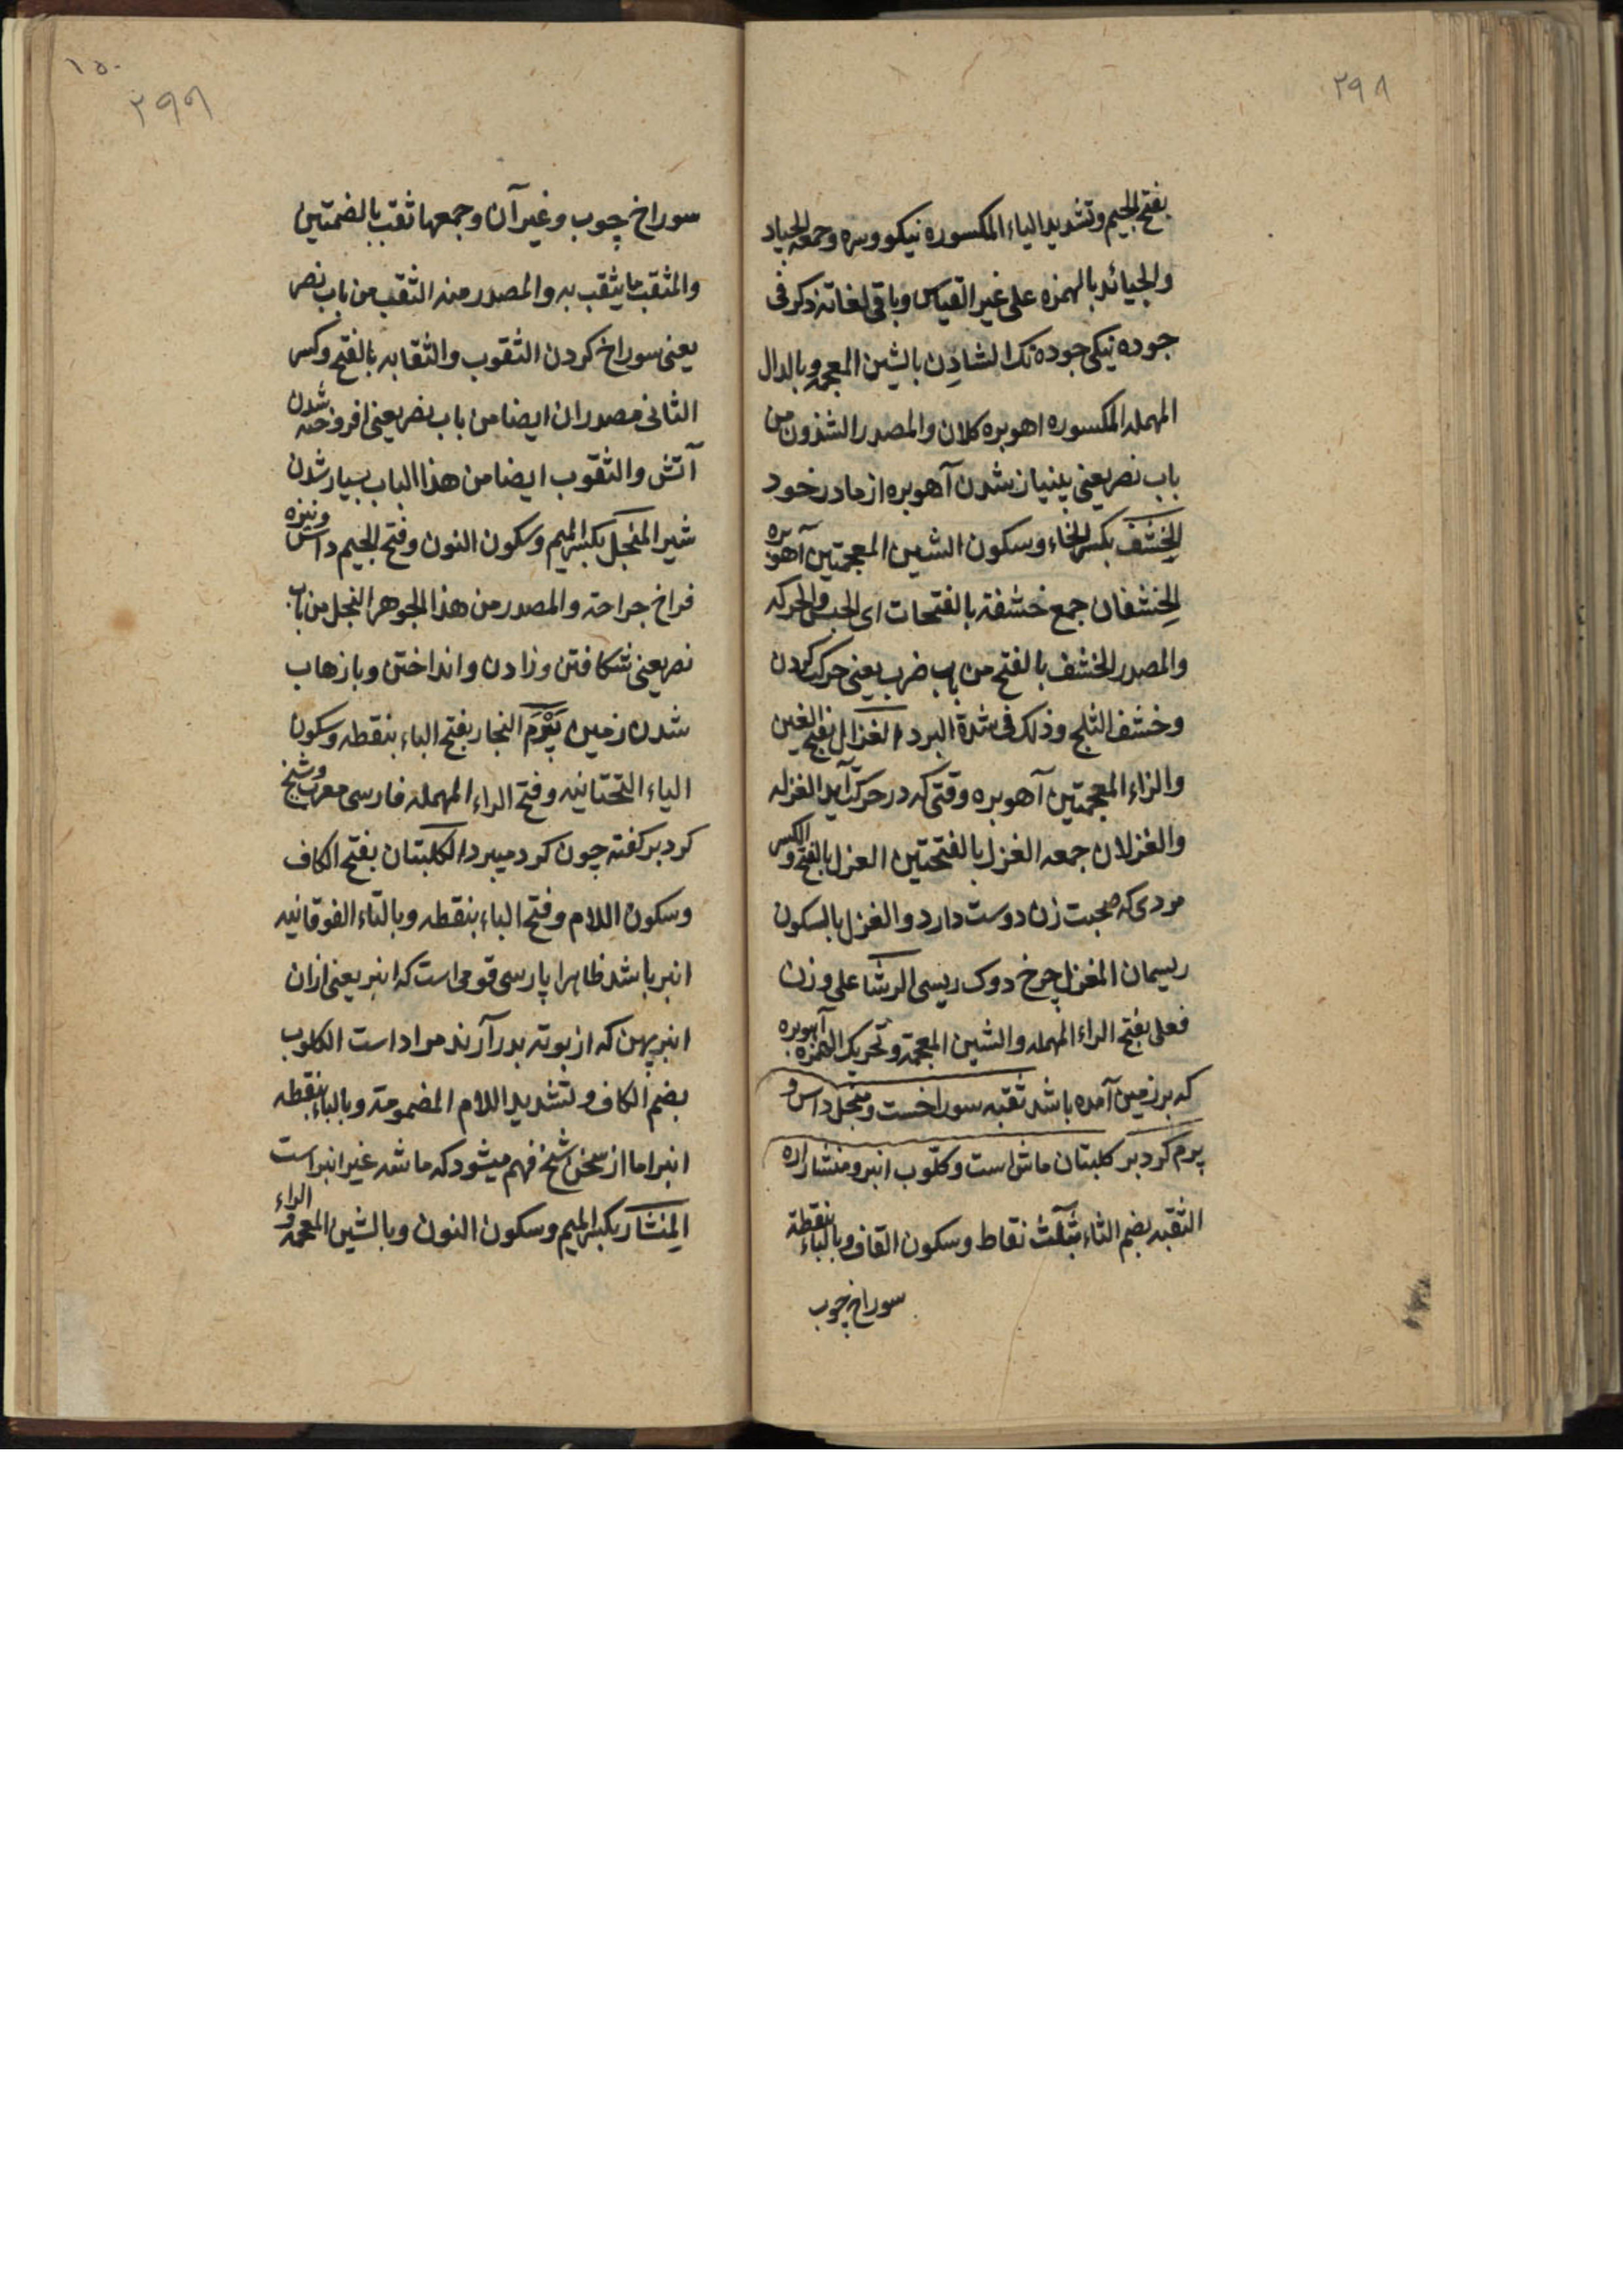 ۲۹۸
بفتح الجیم وتشدید الیاء المکسوره نیکو وسره وجمعه الجیاد
والجیائد بالهمزه علی غیر القیاس وباقی لغاته ذکر فی
جوده نیکی جوده تک الشادِن بالشین المعجمه وبالدال
المهمله المکسوره اهوبره کلان والمصدر الشدون من
باب نصر یعنی بینیاز شدن آهوبره از مادر خود
الخِشْف بکسر الخاء وسکون الشین المعجمتین آهو بره
الخِشفان جمع خشفة بالفتحات ای الحس والحرکه
والمصدر الخشف بالفتح من باب ضرب یعنی حرکت کردن
وخشف الثلج وذلک فی شدة البرد الغزال بفتح الغین
والزاء المعجمتین آهوبره وقتی که در حرکت آید الغزله
والغزلان جمعه الغزل بالفتحتین الغزل بالفتح والکسر
مردی که صحبت زن دوست دارد والغزل بالسکون
ریسمان المغزل چرخ دوک ریسی الرشا علی وزن
فعلی بفتح الراء المهمله والشین المعجمة وتحریک الهمزه آهوبره
که بر زمین آمده باشد ثقبه سوراخست ومنجل داس و
پرم کردبر کلبتان ماش است وکلّوب انبر ومنشار اره
الثقبه بضم الثاء بثلث نقاط وسکون القاف وبالباء بنقطة
سوراخ چوب
۱۵۰
۲۹۹
سوراخ چوب وغیر آن وجمعها ثقب بالضمتین
والمثقب ما یثقب به والمصدر منه الثقب من باب نصر
یعنی سوراخ کردن الثقوب والثقابه بالفتح وکسر
الثانی مصدران ایضا من باب نصر یعنی افروخته شدن
آتش والثقوب ایضا من هذا الباب بسیار شدن
شیر المنجل بکسر المیم وسکون النون وفتح الجیم داس ونیزه
فراخ جراحة والمصدر من هذا الجوهر النجل من باب
نصر یعنی شکافتن وزادن وانداختن وبازهاب
شدن زمین بَیْرَم النجار بفتح الباء بنقطه وسکون
الیاء التحتانیه وفتح الراء المهمله فارسی معرب وشیخ
کردبر کفته چون کرد میبرد الکلبتان بفتح الکاف
وسکون اللام وفتح الباء بنقطه وبالتاء الفوقانیه
انبر باشد ظاهرا پارسی قومی است که انبر یعنی ازان
انبر پهن که از بوته بدر آرند مراد است الکلوب
بضم الکاف وتشدید اللام المضمومة وبالباء بنقطه
انبر اما از سخن شیخ فهم میشود که ماشه غیر انبر است
المِنشار بکسر المیم وسکون النون وبالشین المعجمه والراء